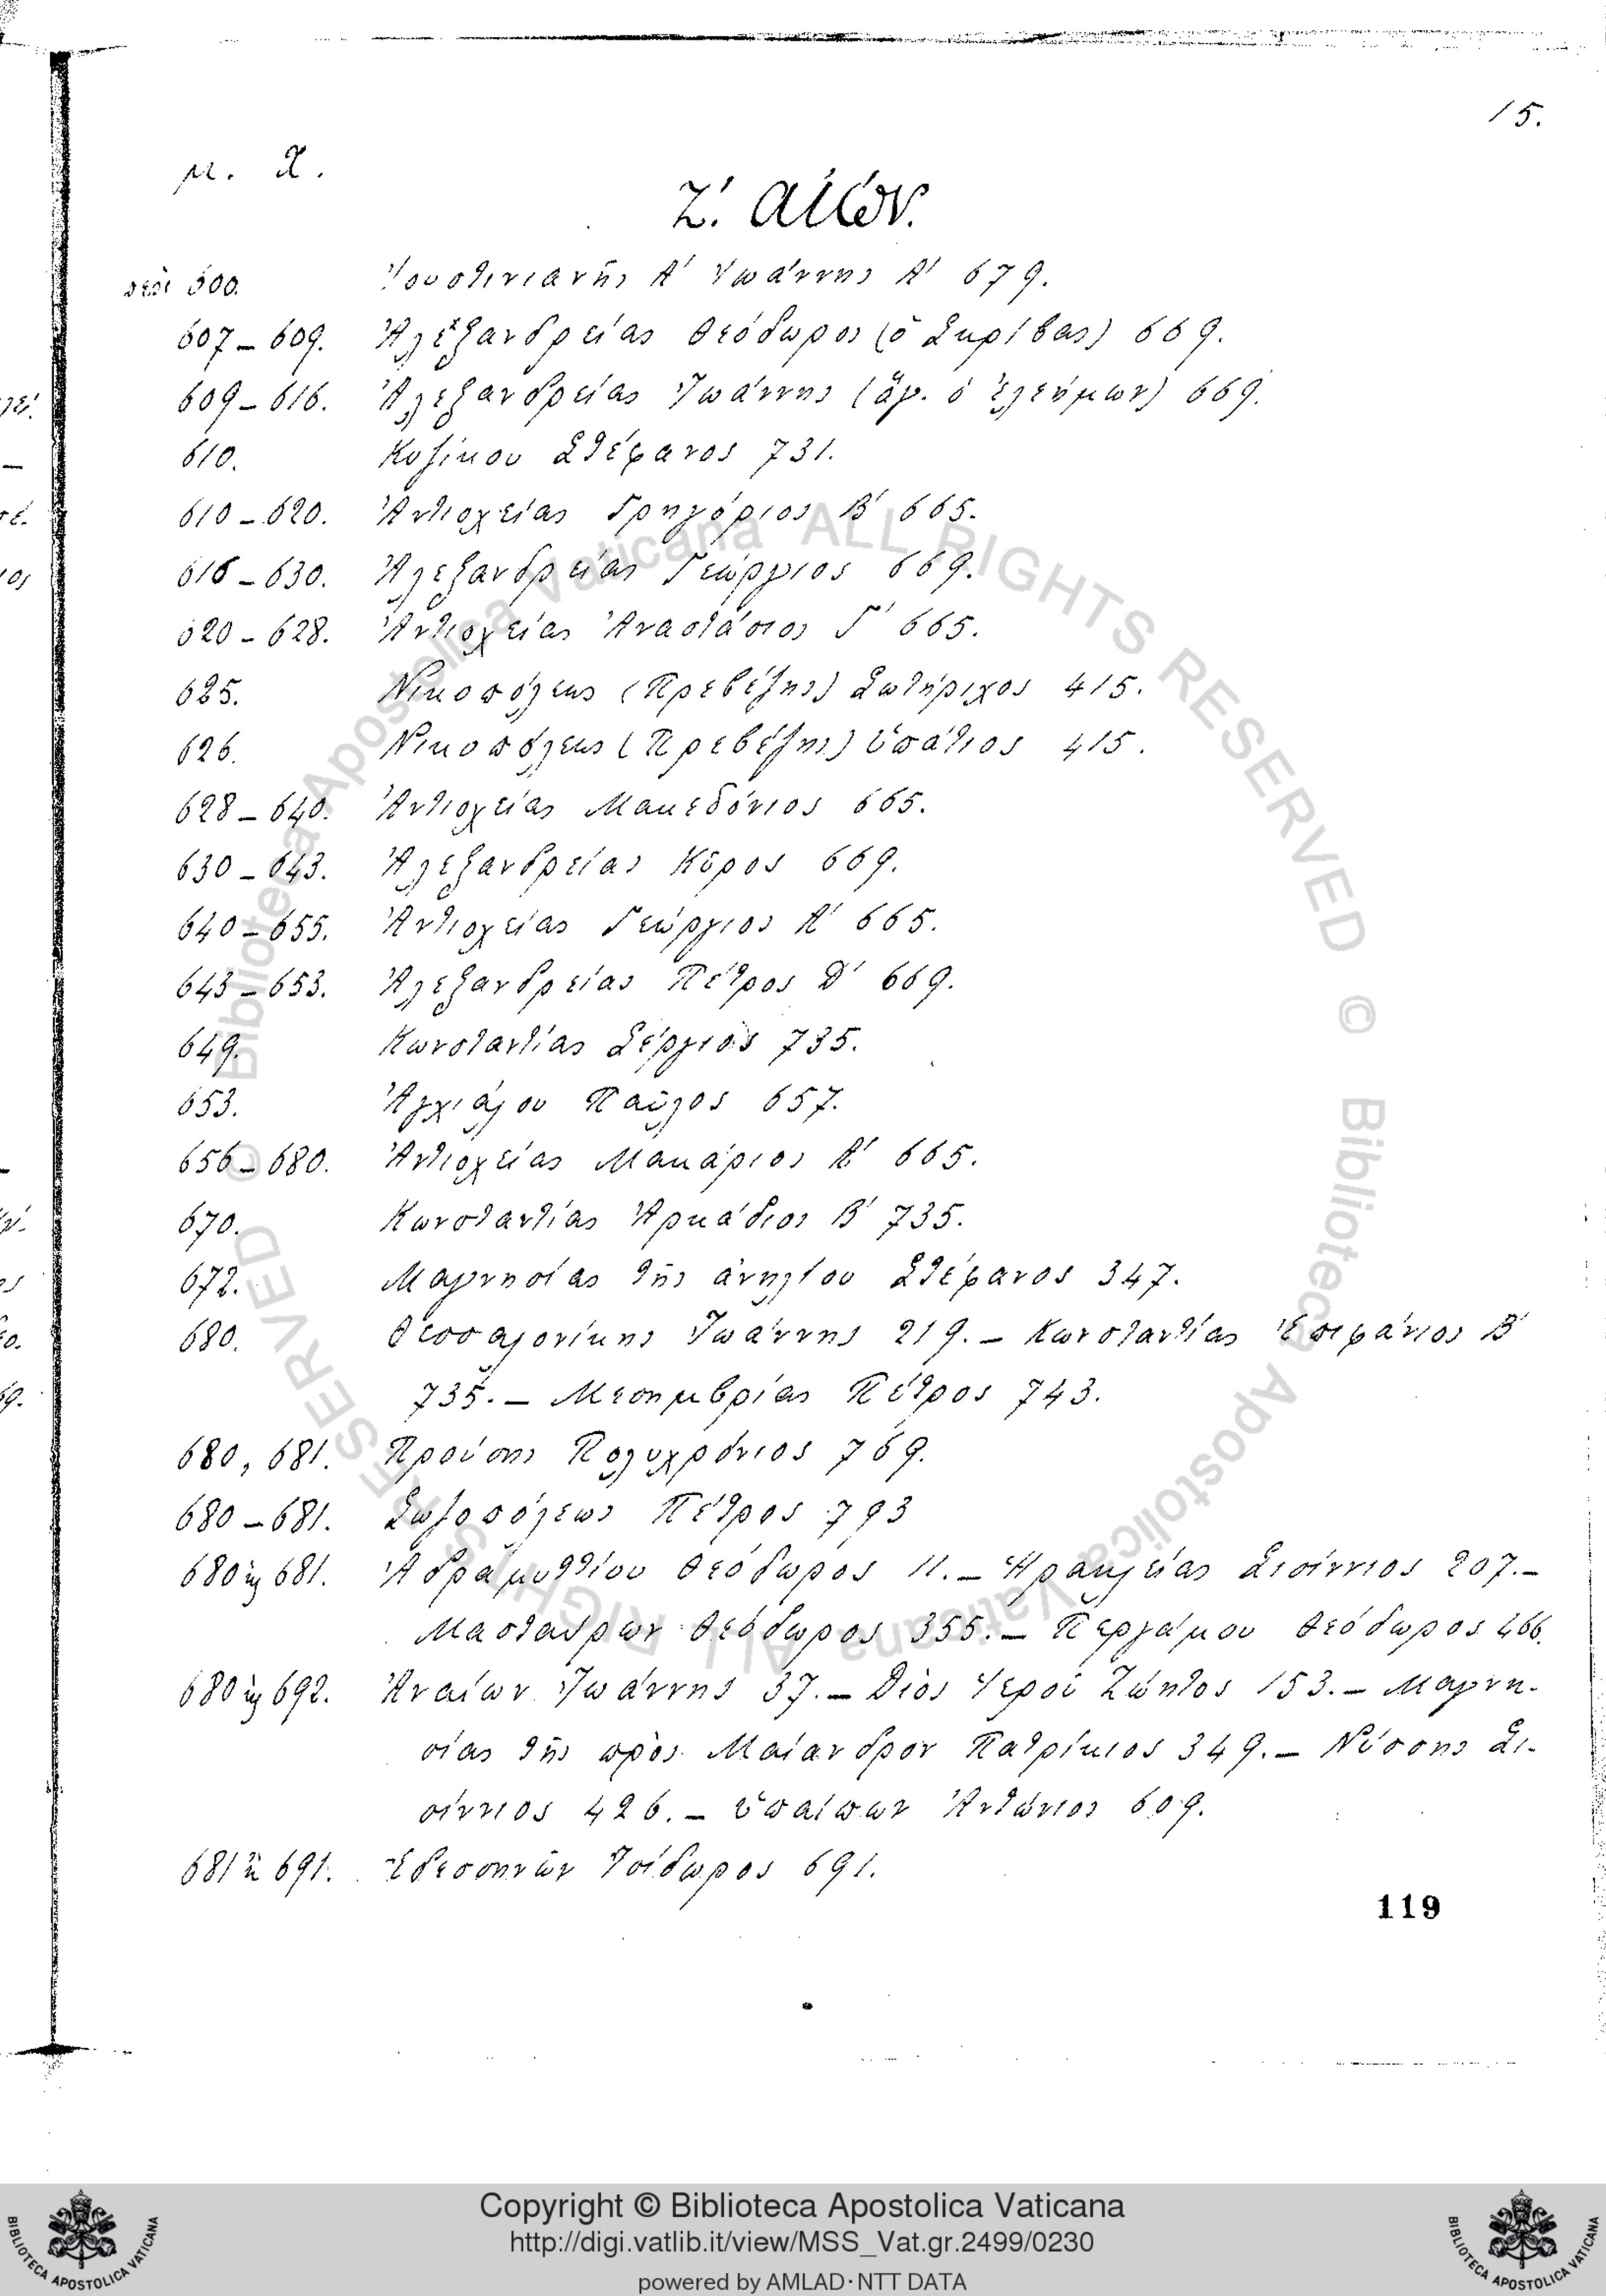 15.
μ. Χ.
Ζ΄. αἰών.
περὶ 600. Ἰουστινιανῆς Α΄ Ἰωάννης Α΄ 679.
607 – 609. Ἀλεξανδρείας Θεόδωρος (ὁ Σκρίβας) 669.
609 – 616. Ἀλεξανδρείας Ἰωάννης (ἅγ. ὁ Ἐλεήμων) 669.
610. Κυζίκου Στέφανος 731.
610 – 620. Ἀντιοχείας Γρηγόριος Β΄ 665.
616 – 630. Ἀλεξανδρείας Γεώργιος 669.
620 – 628. Ἀντιοχείας Ἀναστάσιος Γ΄ 665.
625. Νικοπόλεως (Πρεβέζης) Σωτήριχος 415.
626. Νικοπόλεως (Πρεβέζης) Ὑπάτιος 415.
628 – 640. Ἀντιοχείας Μακεδόνιος 665.
630 – 643. Ἀλεξανδρείας Κῦρος 669.
640 – 655. Ἀντιοχείας Γεώργιος Α΄ 665.
643 – 653. Ἀλεξανδρείας Πέτρος Δ΄ 669.
649. Κωνσταντίας Σέργιος 735.
653. Ἀγχιάλου Παῦλος 657.
656 – 680. Ἀντιοχείας Μακάριος Α΄ 665.
670. Κωνσταντίας Ἀρκάδιος Β΄ 735.
672. Μαγνησίας τῆς ἀνηλίου Στέφανος 347.
680. Θεσσαλονίκης Ἰωάννης 219. – Κωνσταντίας Ἐπιφάνιος Β΄
735. – Μεσημβρίας Πέτρος 743.
680, 681. Προύσης Πολυχρόνιος 769.
680 – 681. Σωζοπόλεως Πέτρος 793
680 καὶ 681. Ἀδραμυττίου Θεόδωρος 11. – Ἡρακλείας Σισίννιος 207. –
Μασταύρων Θεόδωρος 355. – Περγάμου Θεόδωρος 466.
680 καὶ 692. Ἀναίων Ἰωάννης 37. – Διὸς Ἱεροῦ Ζώητος 153. – Μαγνη-
σίας τῆς πρὸς Μαίανδρον Πατρίκιος 349. – Νύσσης Σι-
σίννιος 426. – Ὑπαίπων Ἀντώνιος 609.
681 ἢ 691. Ἐδεσσηνῶν Ἰσίδωρος 691.
119
Copyright © Biblioteca Apostolica Vaticana
http://digi.vatlib.it/view/MSS_Vat.gr.2499/0230
powered by AMLAD·NTT DATA
BIBLIOTECA APOSTOLICA VATICANA
BIBLIOTECA APOSTOLICA VATICANA
© Biblioteca Apostolica Vaticana ALL RIGHTS RESERVED © Biblioteca Apostolica Vaticana ALL RIGHTS RESERVED